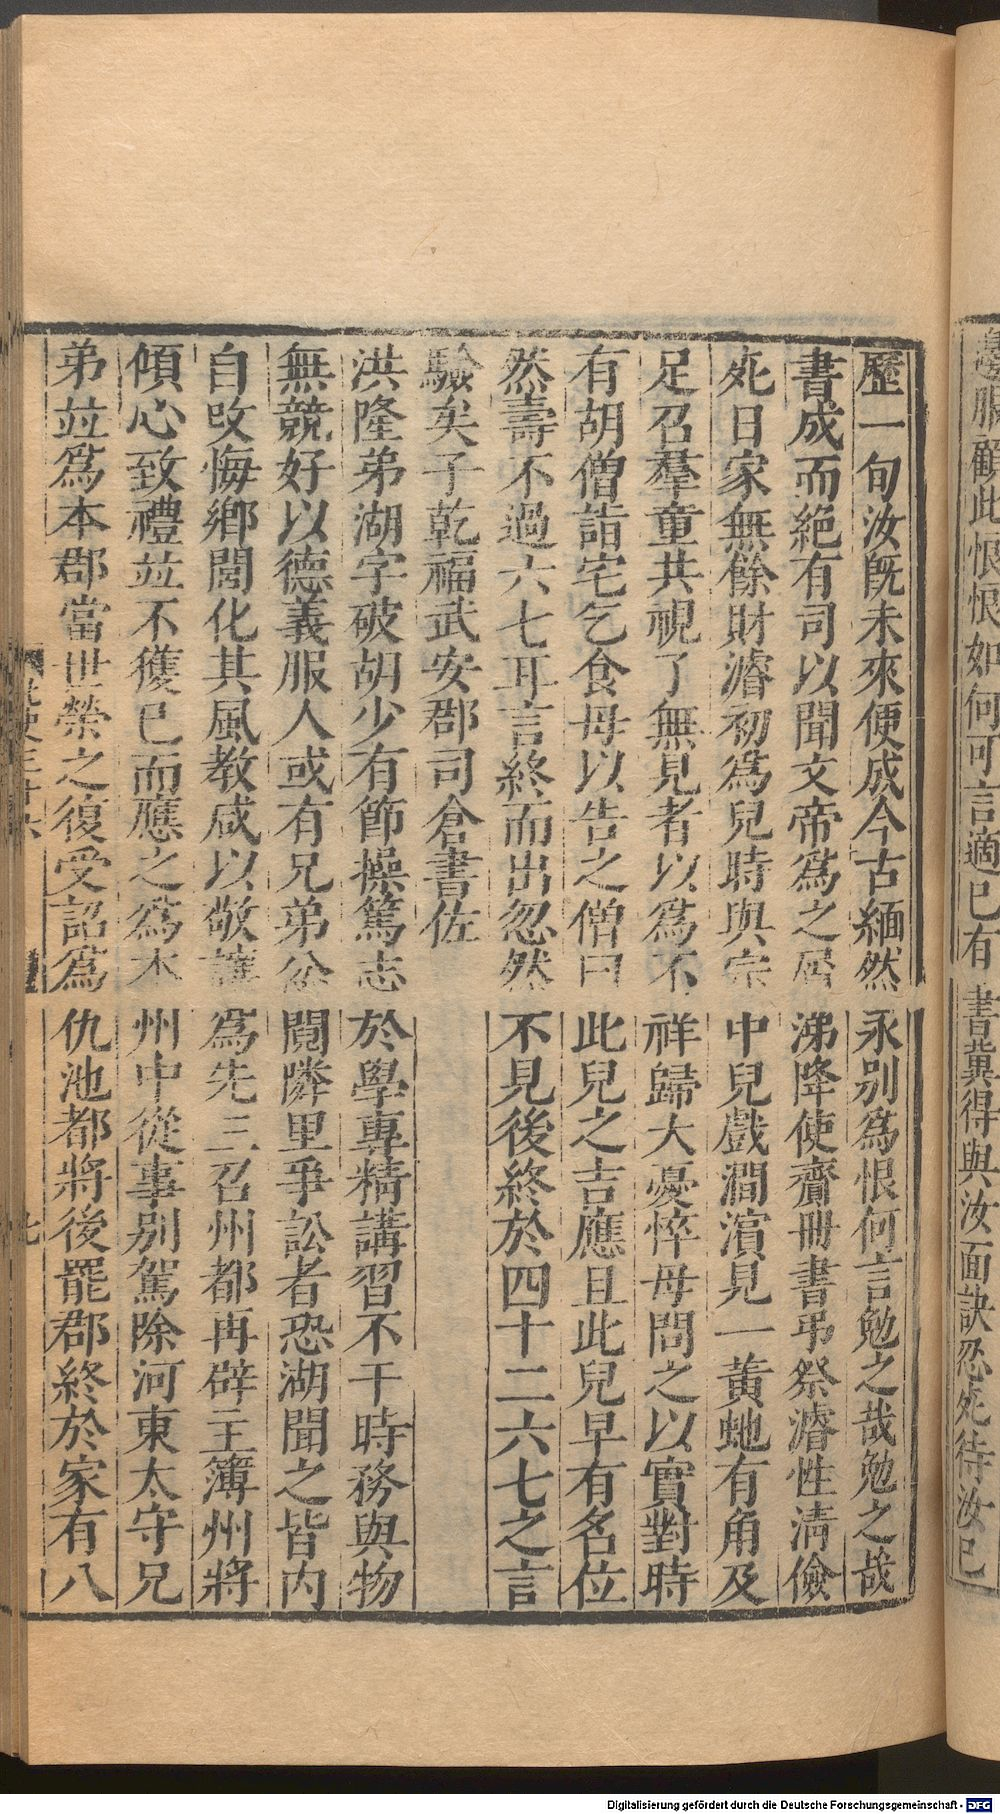 憑服顧此恨恨如何可言適已有書冀得與汝面訣忍死待汝已
歷一旬汝旣未來便成今古緬然永别爲恨何言勉之哉勉之哉
書成而絶有司以聞文帝爲之屑涕降使齎冊書弔祭濬性淸儉
死日家無餘財濬初爲兒時與宗中兒戲澗濱見一黃虵有角及
足召羣童共視了無見者以爲不祥歸大憂悴母問之以實對時
有胡僧詣宅乞食母以告之僧曰此兒之吉應且此兒早有名位
然壽不過六七耳言終而出忽然不見後終於四十二六七之言
驗矣子乾福武安郡司倉書佐
洪隆弟湖字破胡少有節操篤志於學專精講習不干時務與物
無競好以德義服人或有兄弟忿鬩隣里爭訟者恐湖聞之皆内
自改悔鄉閭化其風敎咸以敬讓爲先三召州都再辟主簿州將
傾心致禮並不獲已而應之爲本州中從事别駕除河東太守兄
弟並爲本郡當世榮之復受詔爲仇池都將後罷郡終於家有八
Digitalisierung gefördert durch die Deutsche Forschungsgemeinschaft - DFG